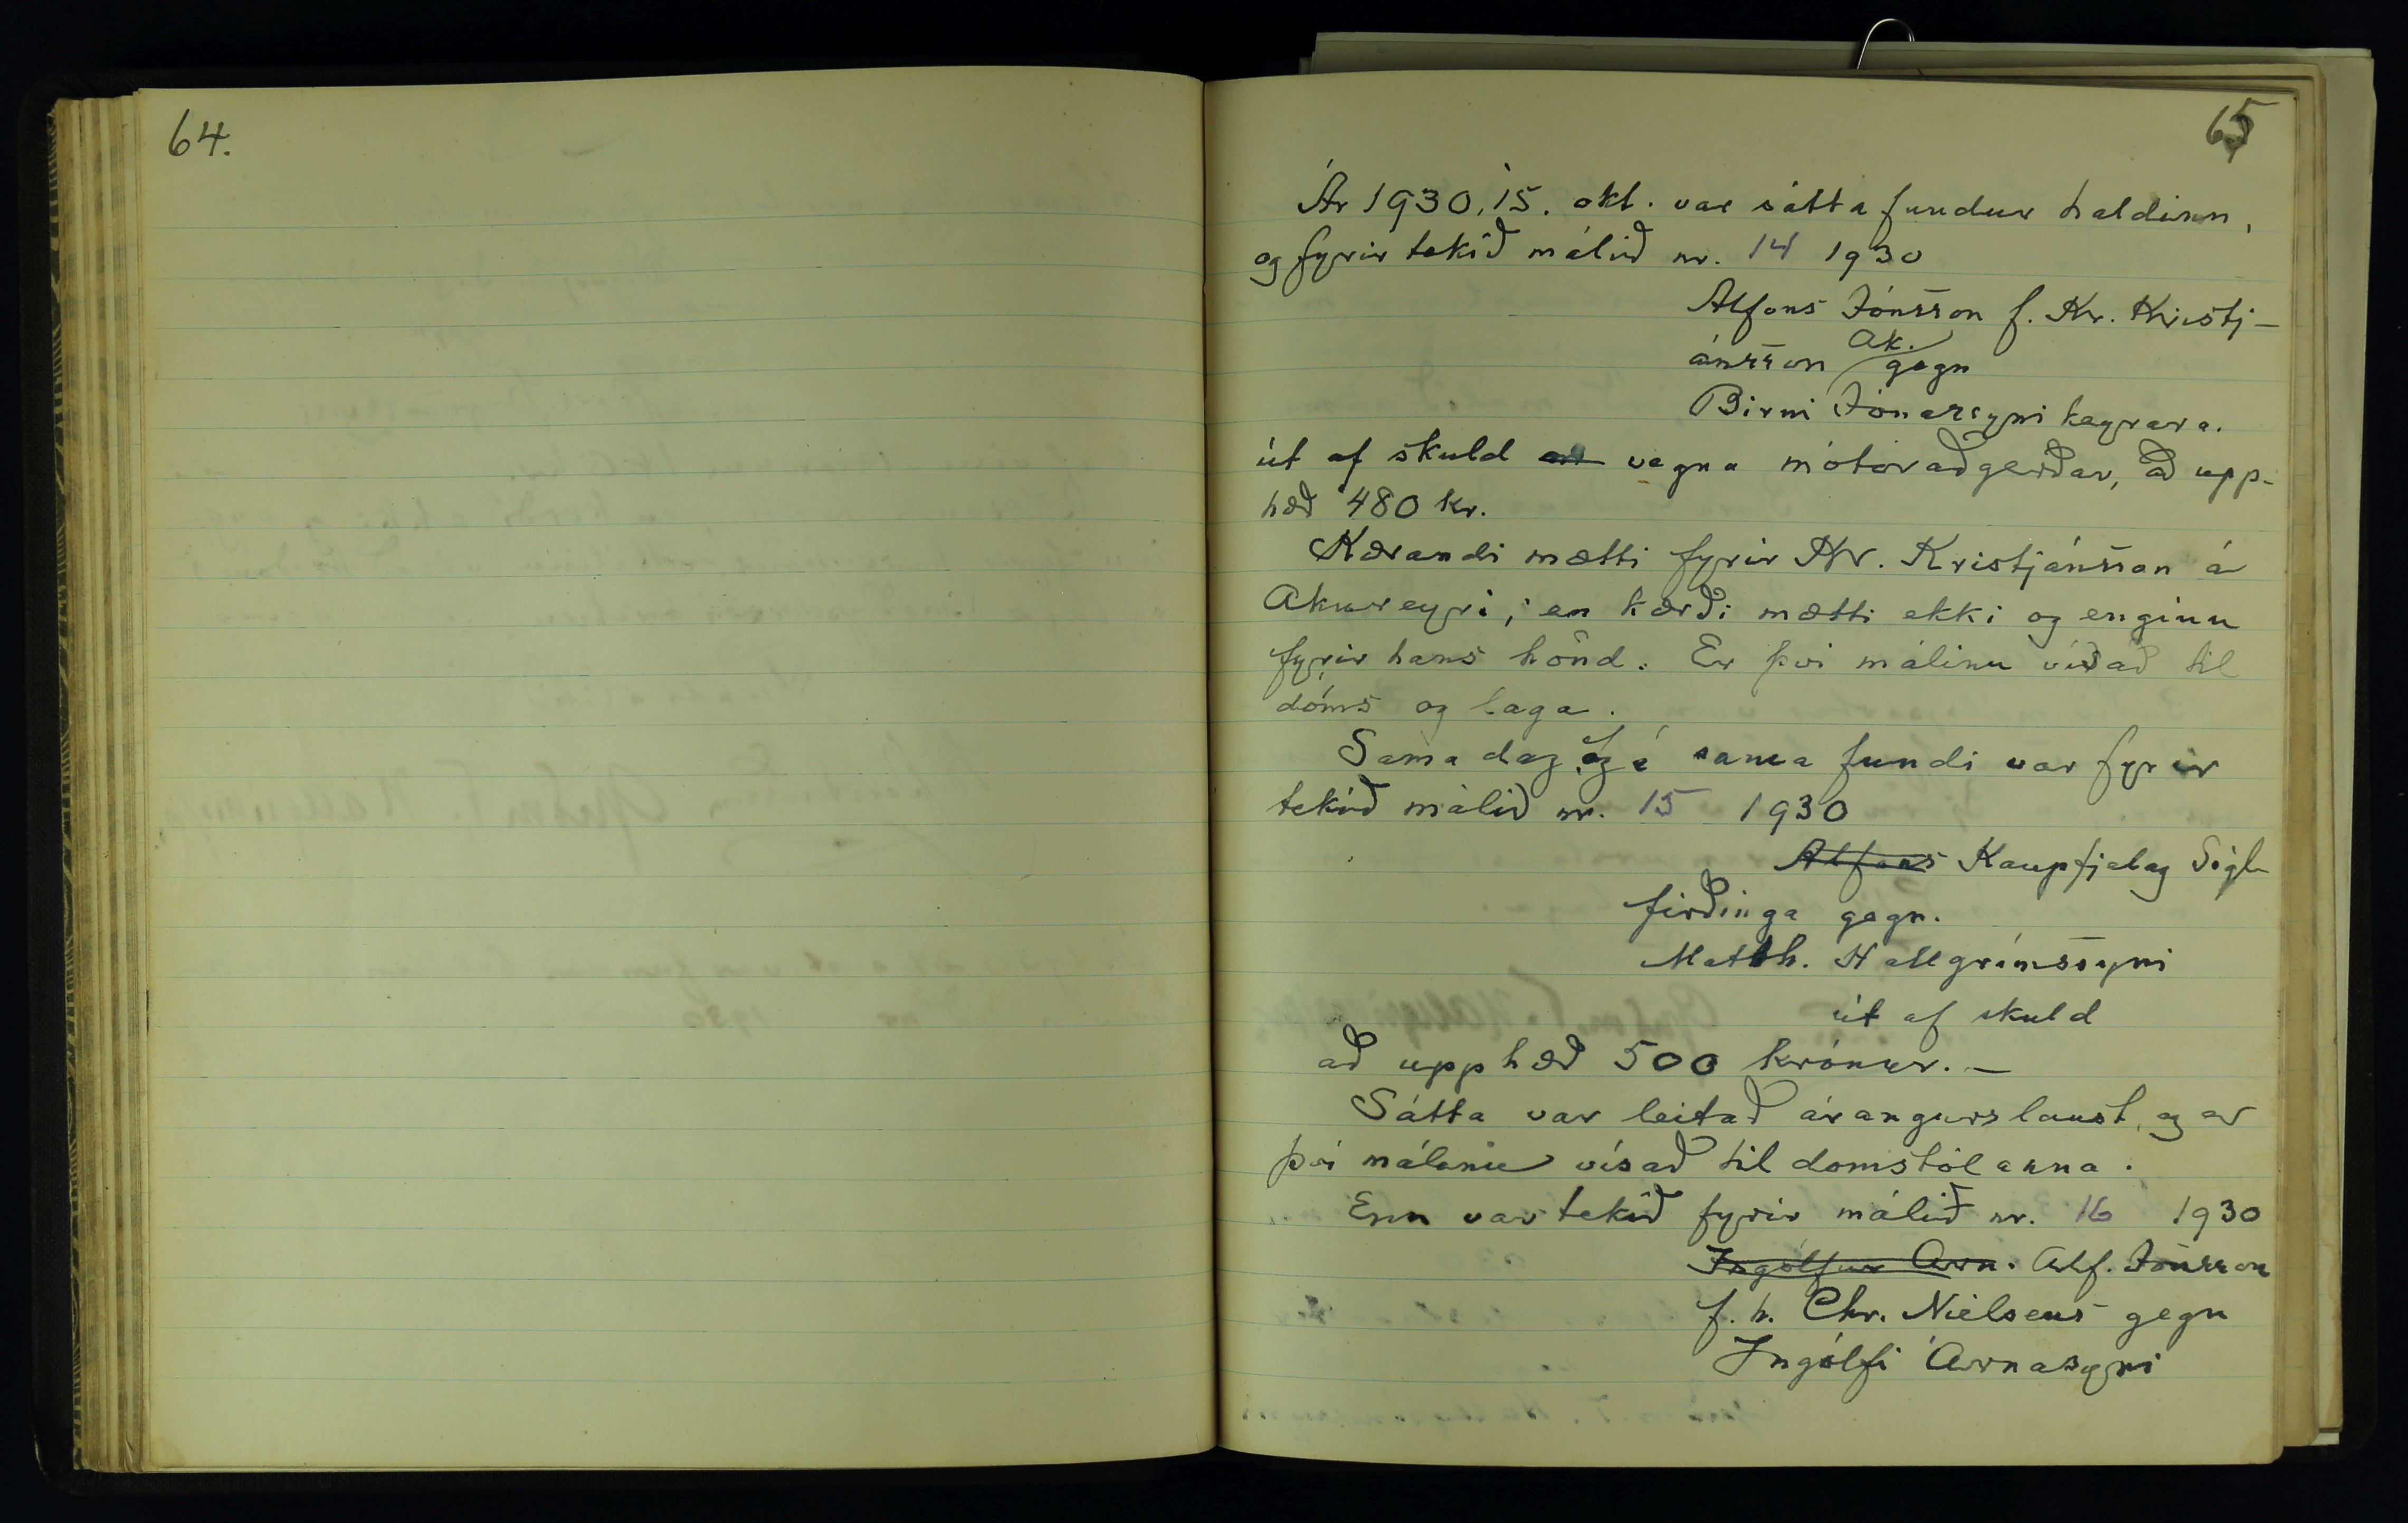 64.
65
Ár 1930, 15. okt. var sátta fundur haldinn,
og fyrir tekið málið nr. 14 1930
Alfons Jónsson f. Kr. Kristj-
ánsson Ak. gegn
Birni Jónassyni keyrara.
út af skuld vegna mótoraðgerðar, að upp-
hæð 480 kr.
Kærandi mætti fyrir Kr. Kristjánsson á
Akureyri, en kærði mætti ekki og enginn
fyrir hans hönd. Er því málinu vísað til
dóms og laga.
Sama dag og á sama fundi var fyrir
tekið málið nr. 15 1930
Alfons Kaupfjelag Sigl-
firðinga gegn.
Matth. Hallgrímssyni
út af skuld
að upphæð 500 krónur. —
Sátta var leitað árangurslaust, og er
því málinu vísað til domstólanna.
Enn var tekið fyrir málið nr. 16 1930
Ingólfur Arn. Alf. Jónsson
f. h. Chr. Nielsens gegn
Ingólfi Árnasyni